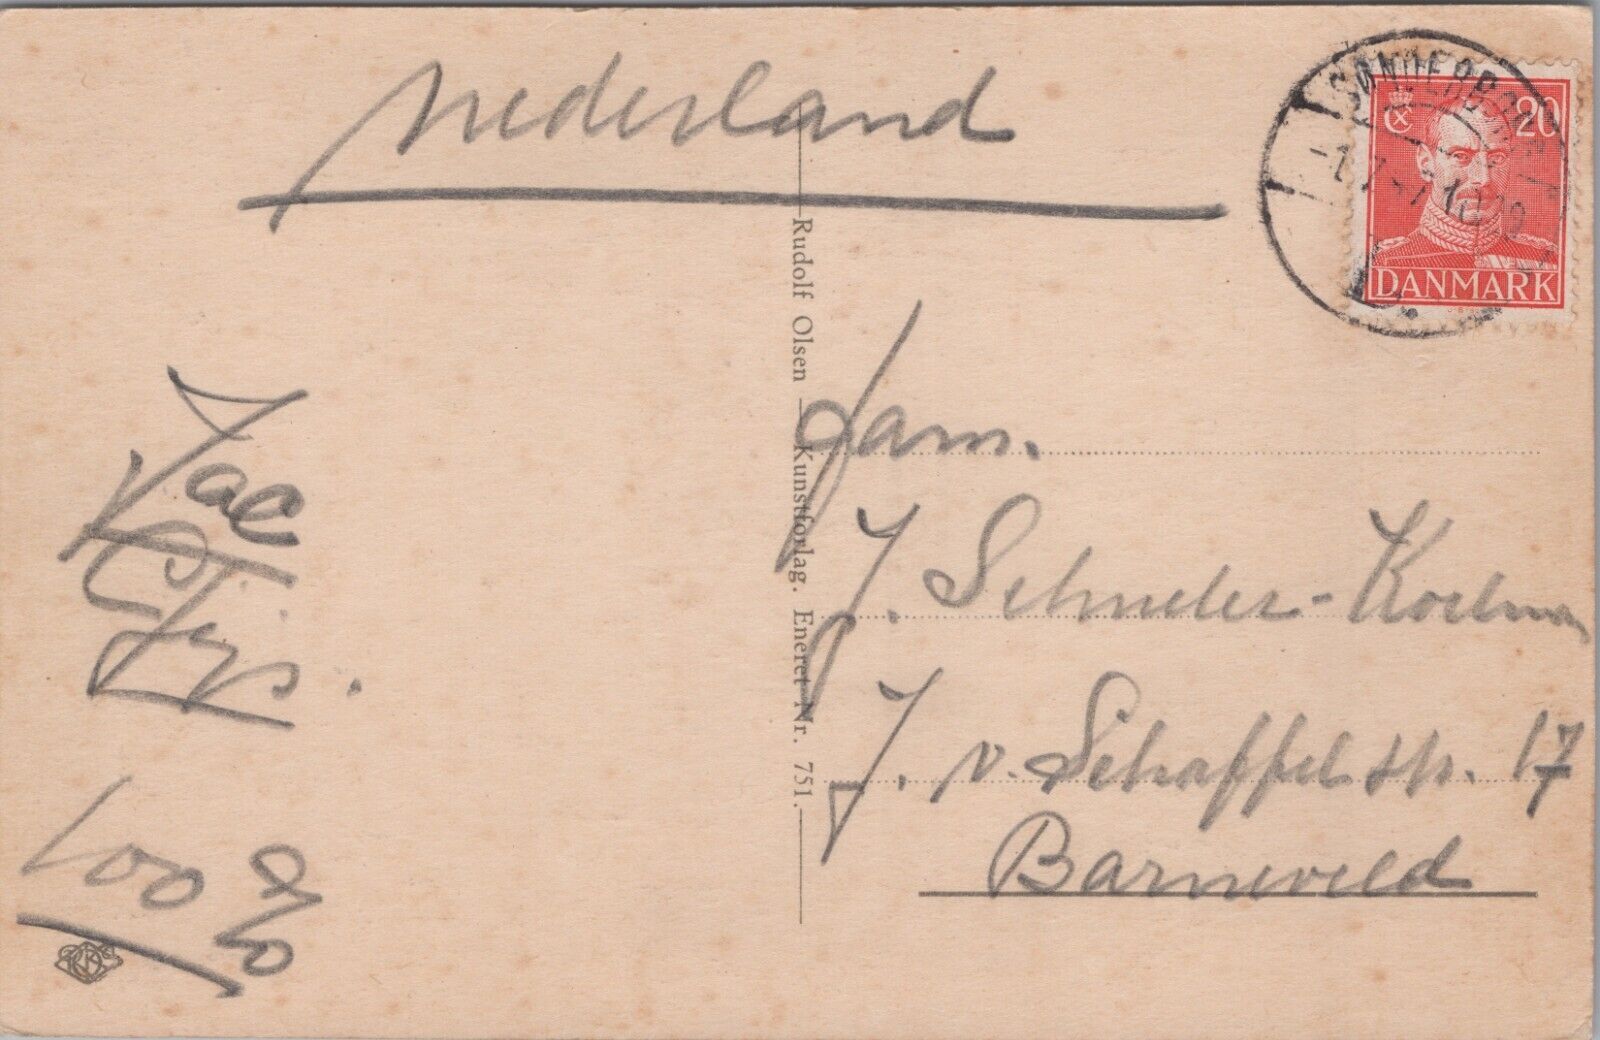 Nederland
SØNDERBORG
20
DANMARK
Rudolf Olsen — Kunstforlag. Eneret Nr. 751.
Fam.
J. Schreuder-Koelman
J. v. Schaffelstr. 17
Barneveld
Jac
100 %